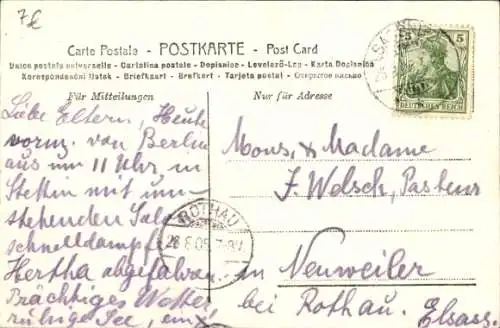 7k
Carte Postale - POSTKARTE - Post Card
Union postale universelle - Cartolina postale - Dopisnice - Levelező-Lap - Karta Dopisnica
Korespondenčni listek - Briefkaart - Brefkort - Tarjeta postal - Открытое письмо
Für Mitteilungen
Nur für Adresse
5
DEUTSCHES REICH
Liebe Eltern, Heute
vorm. von Berlin
aus um 11 Uhr in
Stettin mit um-
stehenden Salon
schnelldampfer
Hertha abgefahren.
Prächtiges Wetter
ruhige See,
Mons. & Madame
J. Welsch, Pasteur
in Neuweiler
bei Rothau. Elsass.
ROTHAU